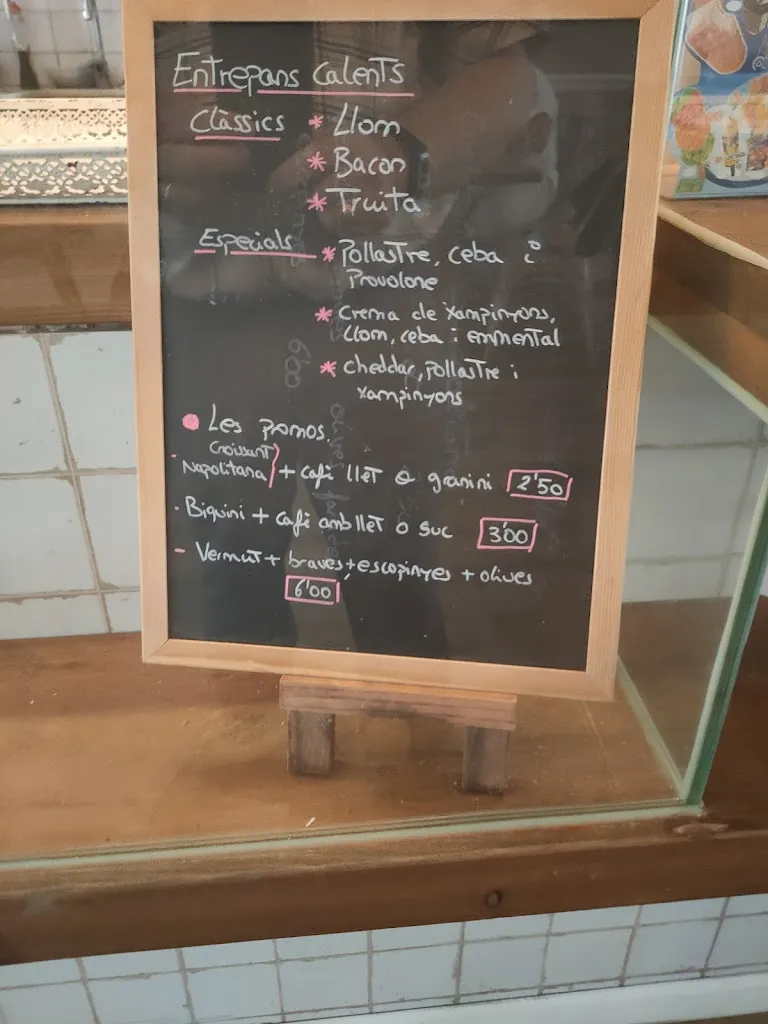 Entrepans calents
Clàssics * Llom
* Bacon
* Truita
Especials * Pollastre, ceba i
Provolone
* Crema de xampinyons,
llom, ceba i emmental
* cheddar, pollastre i
xampinyons
Les promos.
Croissant
- Napolitana + cafè llet o granini 2'50
- Biquini + cafè amb llet o suc 3'00
- Vermut + braves + escopinyes + olives
6'00